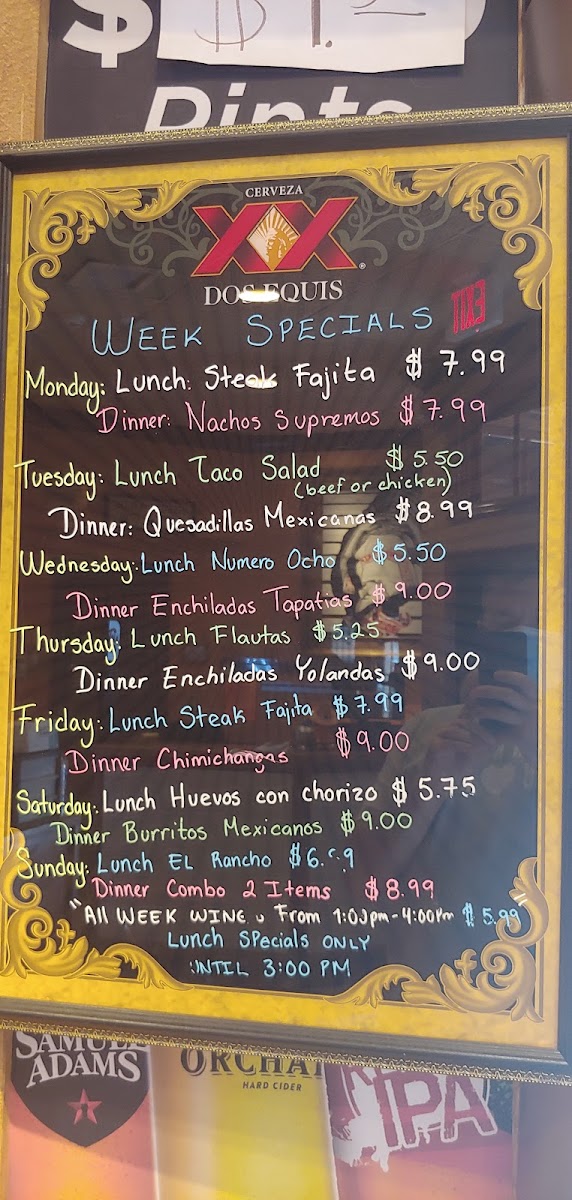 Pints
CERVEZA
XX
DOS EQUIS
WEEK SPECIALS
EXIT
Monday: Lunch: Steak Fajita $7.99
Dinner: Nachos Supremos $7.99
Tuesday: Lunch Taco Salad $5.50
(beef or chicken)
Dinner: Quesadillas Mexicanas $8.99
Wednesday: Lunch Numero Ocho $5.50
Dinner Enchiladas Tapatias $9.00
Thursday: Lunch Flautas $5.25
Dinner Enchiladas Yolandas $9.00
Friday: Lunch Steak Fajita $7.99
Dinner Chimichangas $9.00
Saturday: Lunch Huevos con chorizo $5.75
Dinner Burritos Mexicanos $9.00
Sunday: Lunch EL Rancho
Dinner Combo 2 Items $8.99
"All WEEK From 1:00pm-4:00PM $5.99"
Lunch SPecials ONLY
UNTIL 3:00 PM
SAMUEL
ADAMS
HARD CIDER
IPA